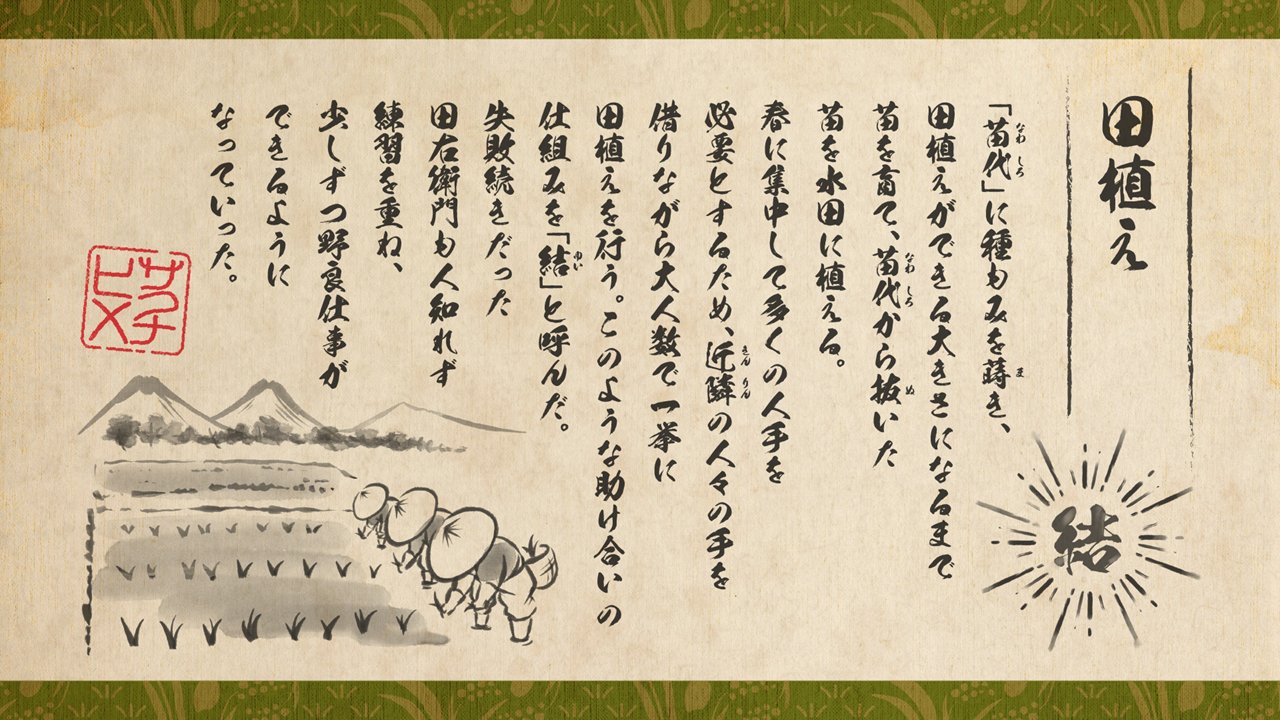 田植え
結
「苗代」に種もみを蒔き、
田植えができる大きさになるまで
苗を育て、苗代から抜いた
苗を水田に植える。
春に集中して多くの人手を
必要とするため、近隣の人々の手を
借りながら大人数で一挙に
田植えを行う。このような助け合いの
仕組みを「結」と呼んだ。
失敗続きだった
田右衛門も人知れず
練習を重ね、
少しずつ野良仕事が
できるように
なっていった。
サクナ
ヒメ